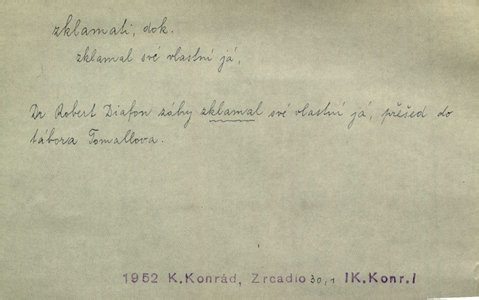 zklamati, dok.
zklamal své vlastní já,
Dr Robert Diafon záhy zklamal své vlastní já, přešed do
tábora Tomallova.
1952 K.Konrád, Zrcadlo 30,1 IK.Konr.I